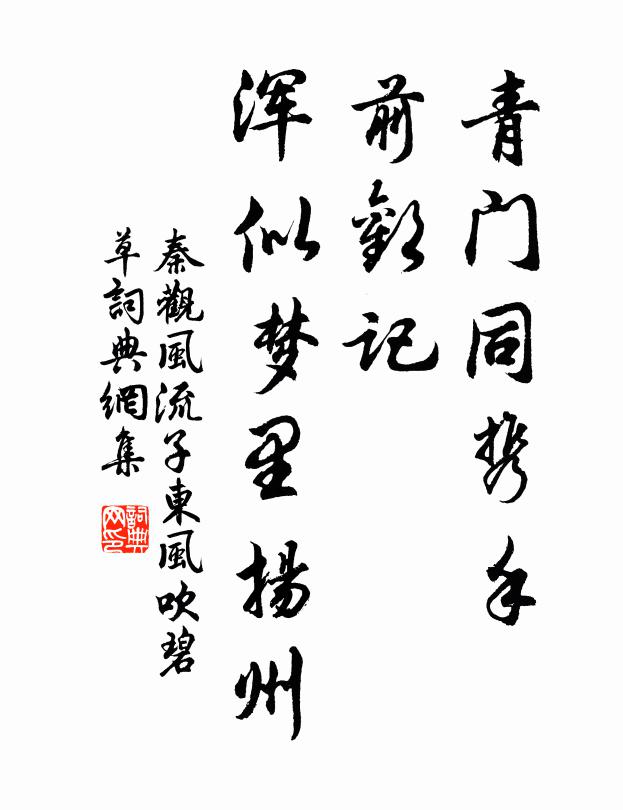 青门同携手
前歡记
浑似梦里揚州
秦觀風流子東風吹碧
草詞典網集
詞典网印